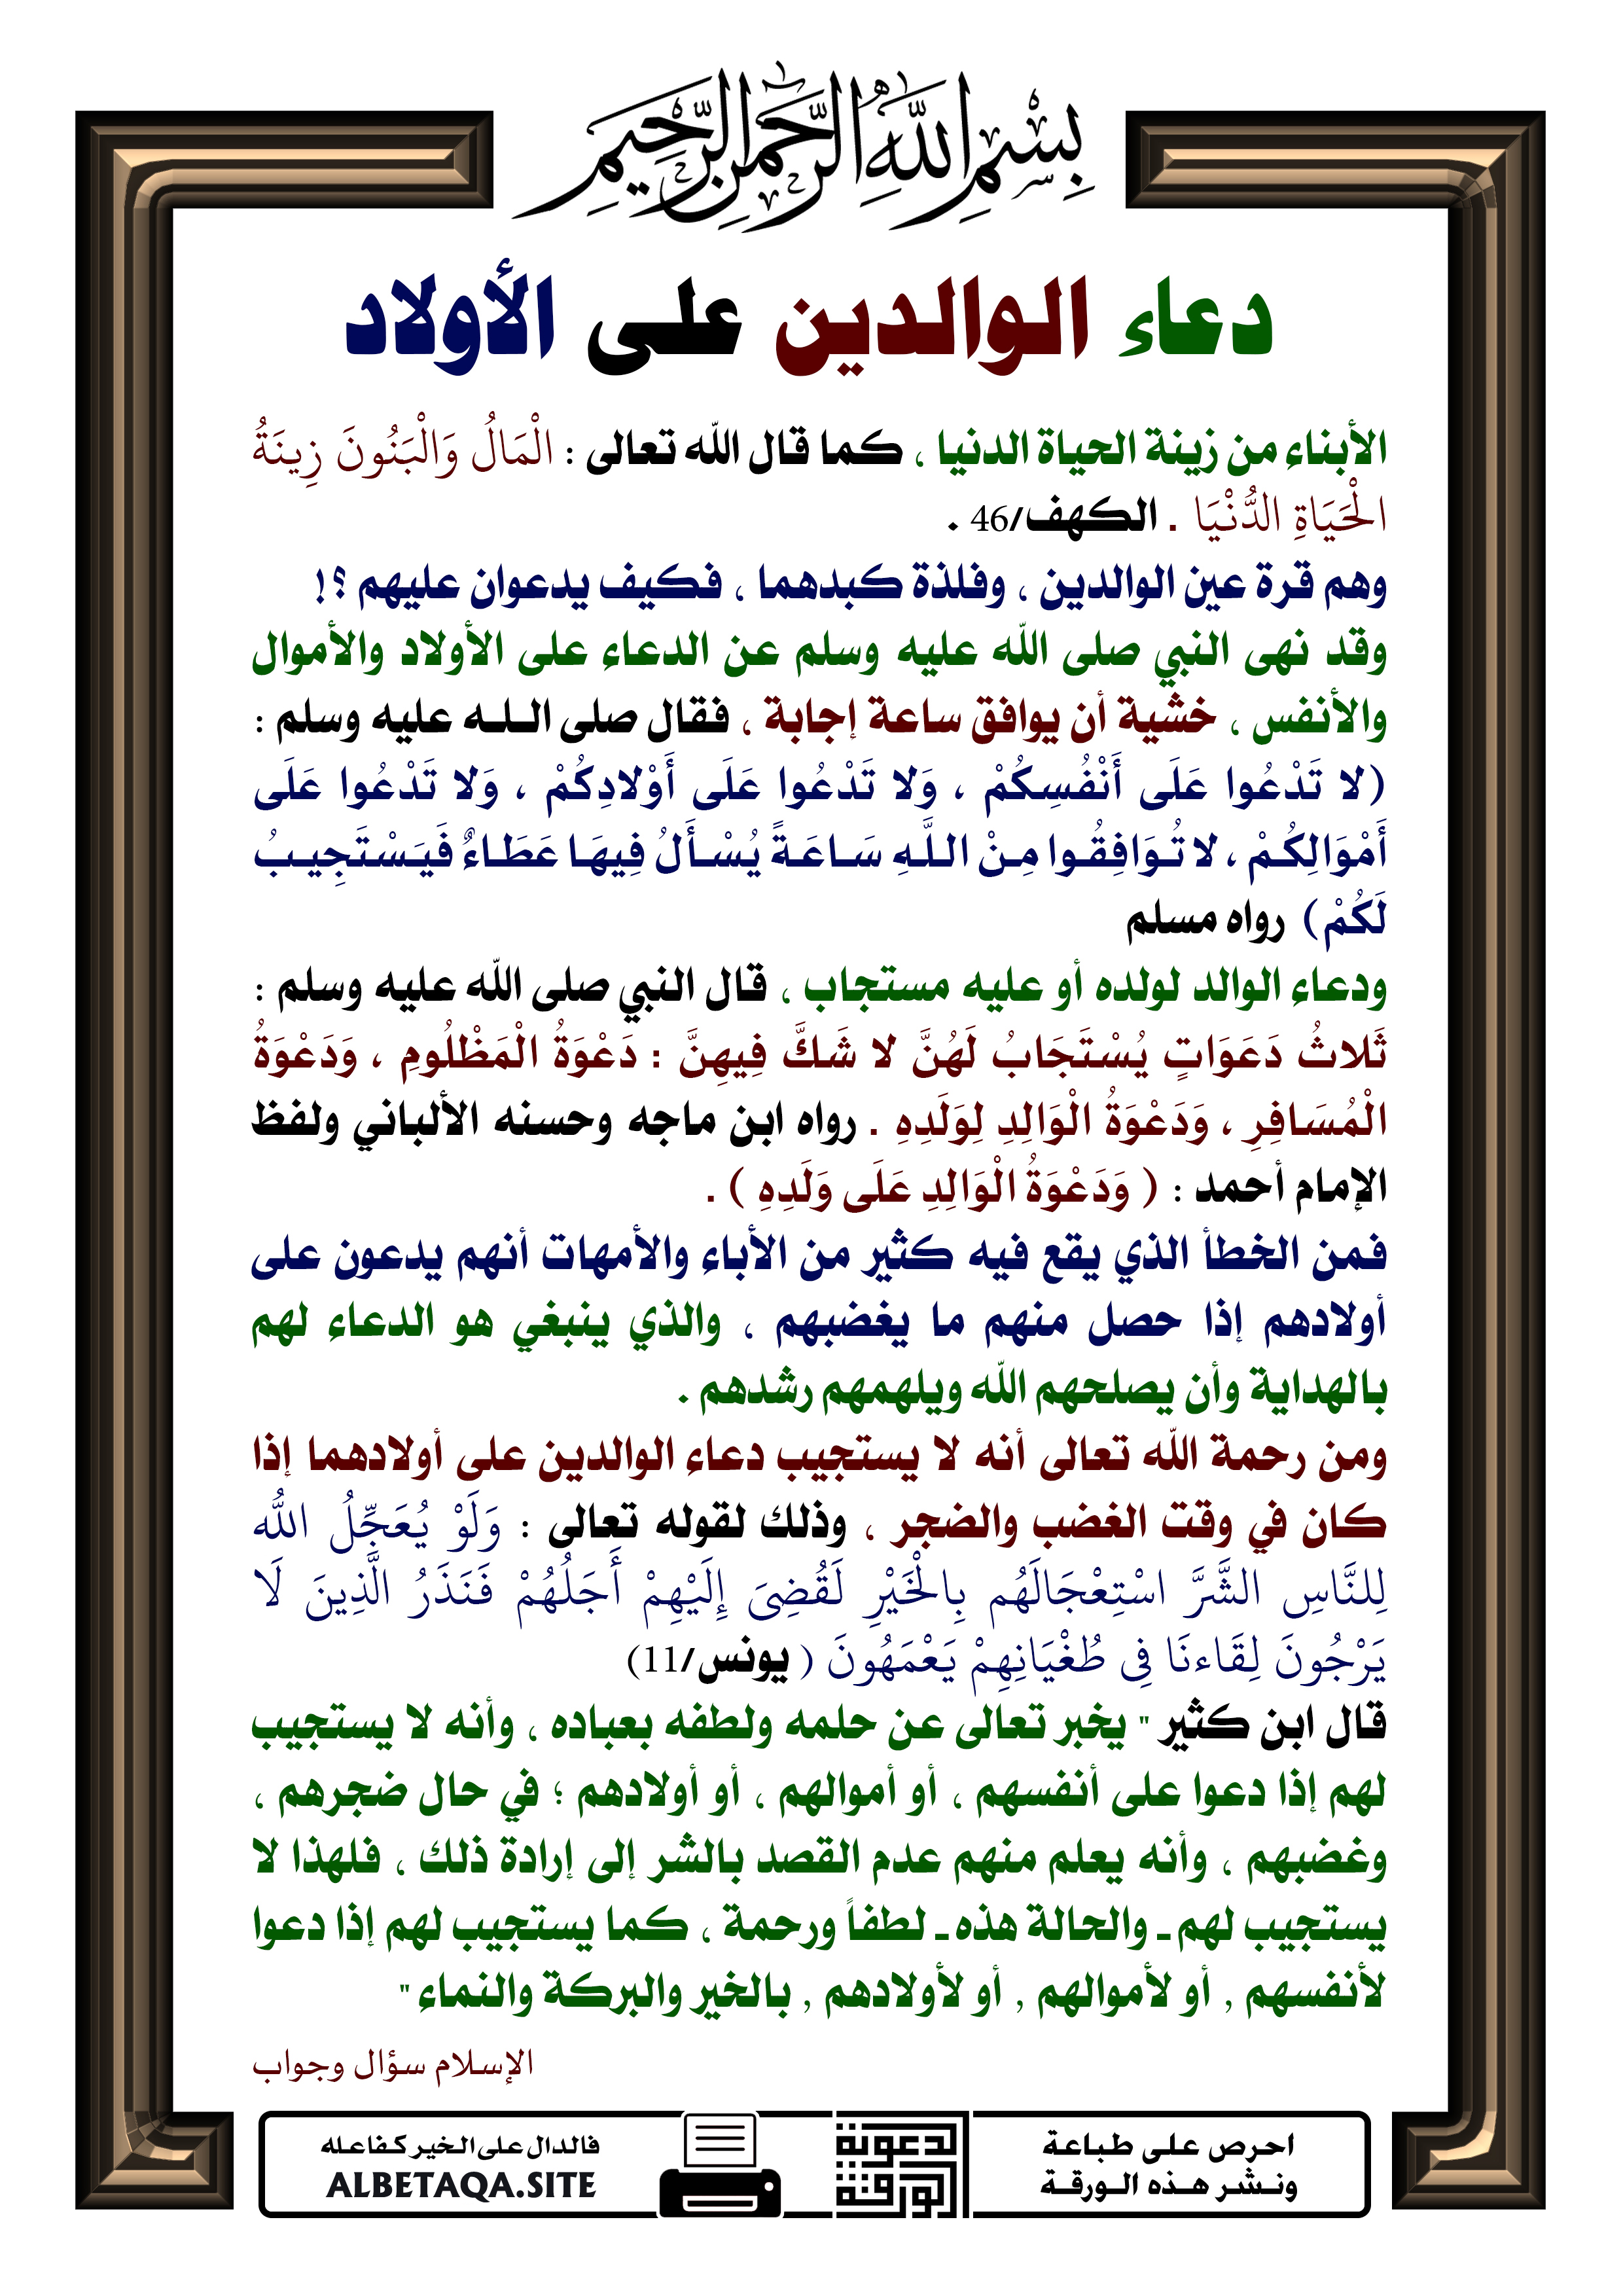 بِسْمِ اللَّهِ الرَّحْمَٰنِ الرَّحِيمِ
دعاء الوالدين على الأولاد
الأبناء من زينة الحياة الدنيا ، كما قال الله تعالى : الْمَالُ وَالْبَنُونَ زِينَةُ
الْحَيَاةِ الدُّنْيَا . الكهف/46 .
وهم قرة عين الوالدين ، وفلذة كبدهما ، فكيف يدعوان عليهم ؟!
وقد نهى النبي صلى الله عليه وسلم عن الدعاء على الأولاد والأموال
والأنفس ، خشية أن يوافق ساعة إجابة ، فقال صلى الله عليه وسلم :
(لا تَدْعُوا عَلَى أَنْفُسِكُمْ ، وَلا تَدْعُوا عَلَى أَوْلادِكُمْ ، وَلا تَدْعُوا عَلَى
أَمْوَالِكُمْ ، لا تُوَافِقُوا مِنْ اللَّهِ سَاعَةً يُسْأَلُ فِيهَا عَطَاءٌ فَيَسْتَجِيبُ
لَكُمْ) رواه مسلم
ودعاء الوالد لولده أو عليه مستجاب ، قال النبي صلى الله عليه وسلم :
ثَلاثُ دَعَوَاتٍ يُسْتَجَابُ لَهُنَّ لا شَكَّ فِيهِنَّ : دَعْوَةُ الْمَظْلُومِ ، وَدَعْوَةُ
الْمُسَافِرِ ، وَدَعْوَةُ الْوَالِدِ لِوَلَدِهِ . رواه ابن ماجه وحسنه الألباني ولفظ
الإمام أحمد : ( وَدَعْوَةُ الْوَالِدِ عَلَى وَلَدِهِ ) .
فمن الخطأ الذي يقع فيه كثير من الأباء والأمهات أنهم يدعون على
أولادهم إذا حصل منهم ما يغضبهم ، والذي ينبغي هو الدعاء لهم
بالهداية وأن يصلحهم الله ويلهمهم رشدهم .
ومن رحمة الله تعالى أنه لا يستجيب دعاء الوالدين على أولادهما إذا
كان في وقت الغضب والضجر ، وذلك لقوله تعالى : وَلَوْ يُعَجِّلُ اللَّه
لِلنَّاسِ الشَّرَّ اسْتِعْجَالَهُم بِالْخَيْرِ لَقُضِيَ إِلَيْهِمْ أَجَلُهُمْ فَنَذَرُ الَّذِينَ لَا
يَرْجُونَ لِقَاءنَا فِي طُغْيَانِهِمْ يَعْمَهُونَ ( يونس/11)
قال ابن كثير " يخبر تعالى عن حلمه ولطفه بعباده ، وأنه لا يستجيب
لهم إذا دعوا على أنفسهم ، أو أموالهم ، أو أولادهم ؛ في حال ضجرهم ،
وغضبهم ، وأنه يعلم منهم عدم القصد بالشر إلى إرادة ذلك ، فلهذا لا
يستجيب لهم ـ والحالة هذه ـ لطفاً ورحمة ، كما يستجيب لهم إذا دعوا
لأنفسهم , أو لأموالهم , أو لأولادهم , بالخير والبركة والنماء "
الإسلام سؤال وجواب
احرص على طباعة
ونشر هذه الورقة
الورقة
الدعوية
فالدال على الخير كفاعله
ALBETAQA.SITE